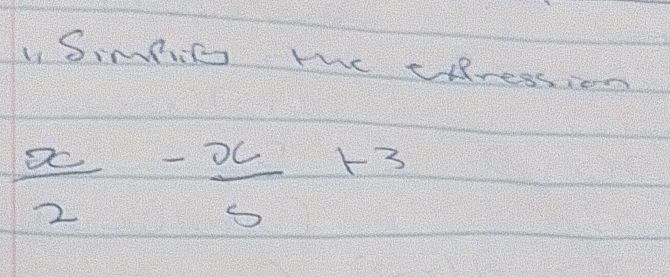 1, Simplify the expression
x/2 - x/5 + 3